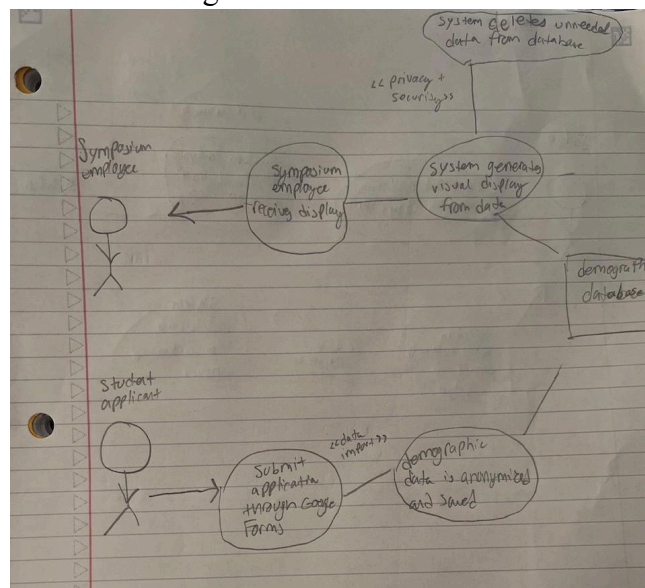 system deletes unneeded
data from database
<< privacy +
security >>
Symposium
employee
symposium
employee
recives display
system generates
visual display
from data
demograph
database
student
applicant
submit
application
through Google
Forms
<<data
import>>
demographic
data is anonymized
and saved